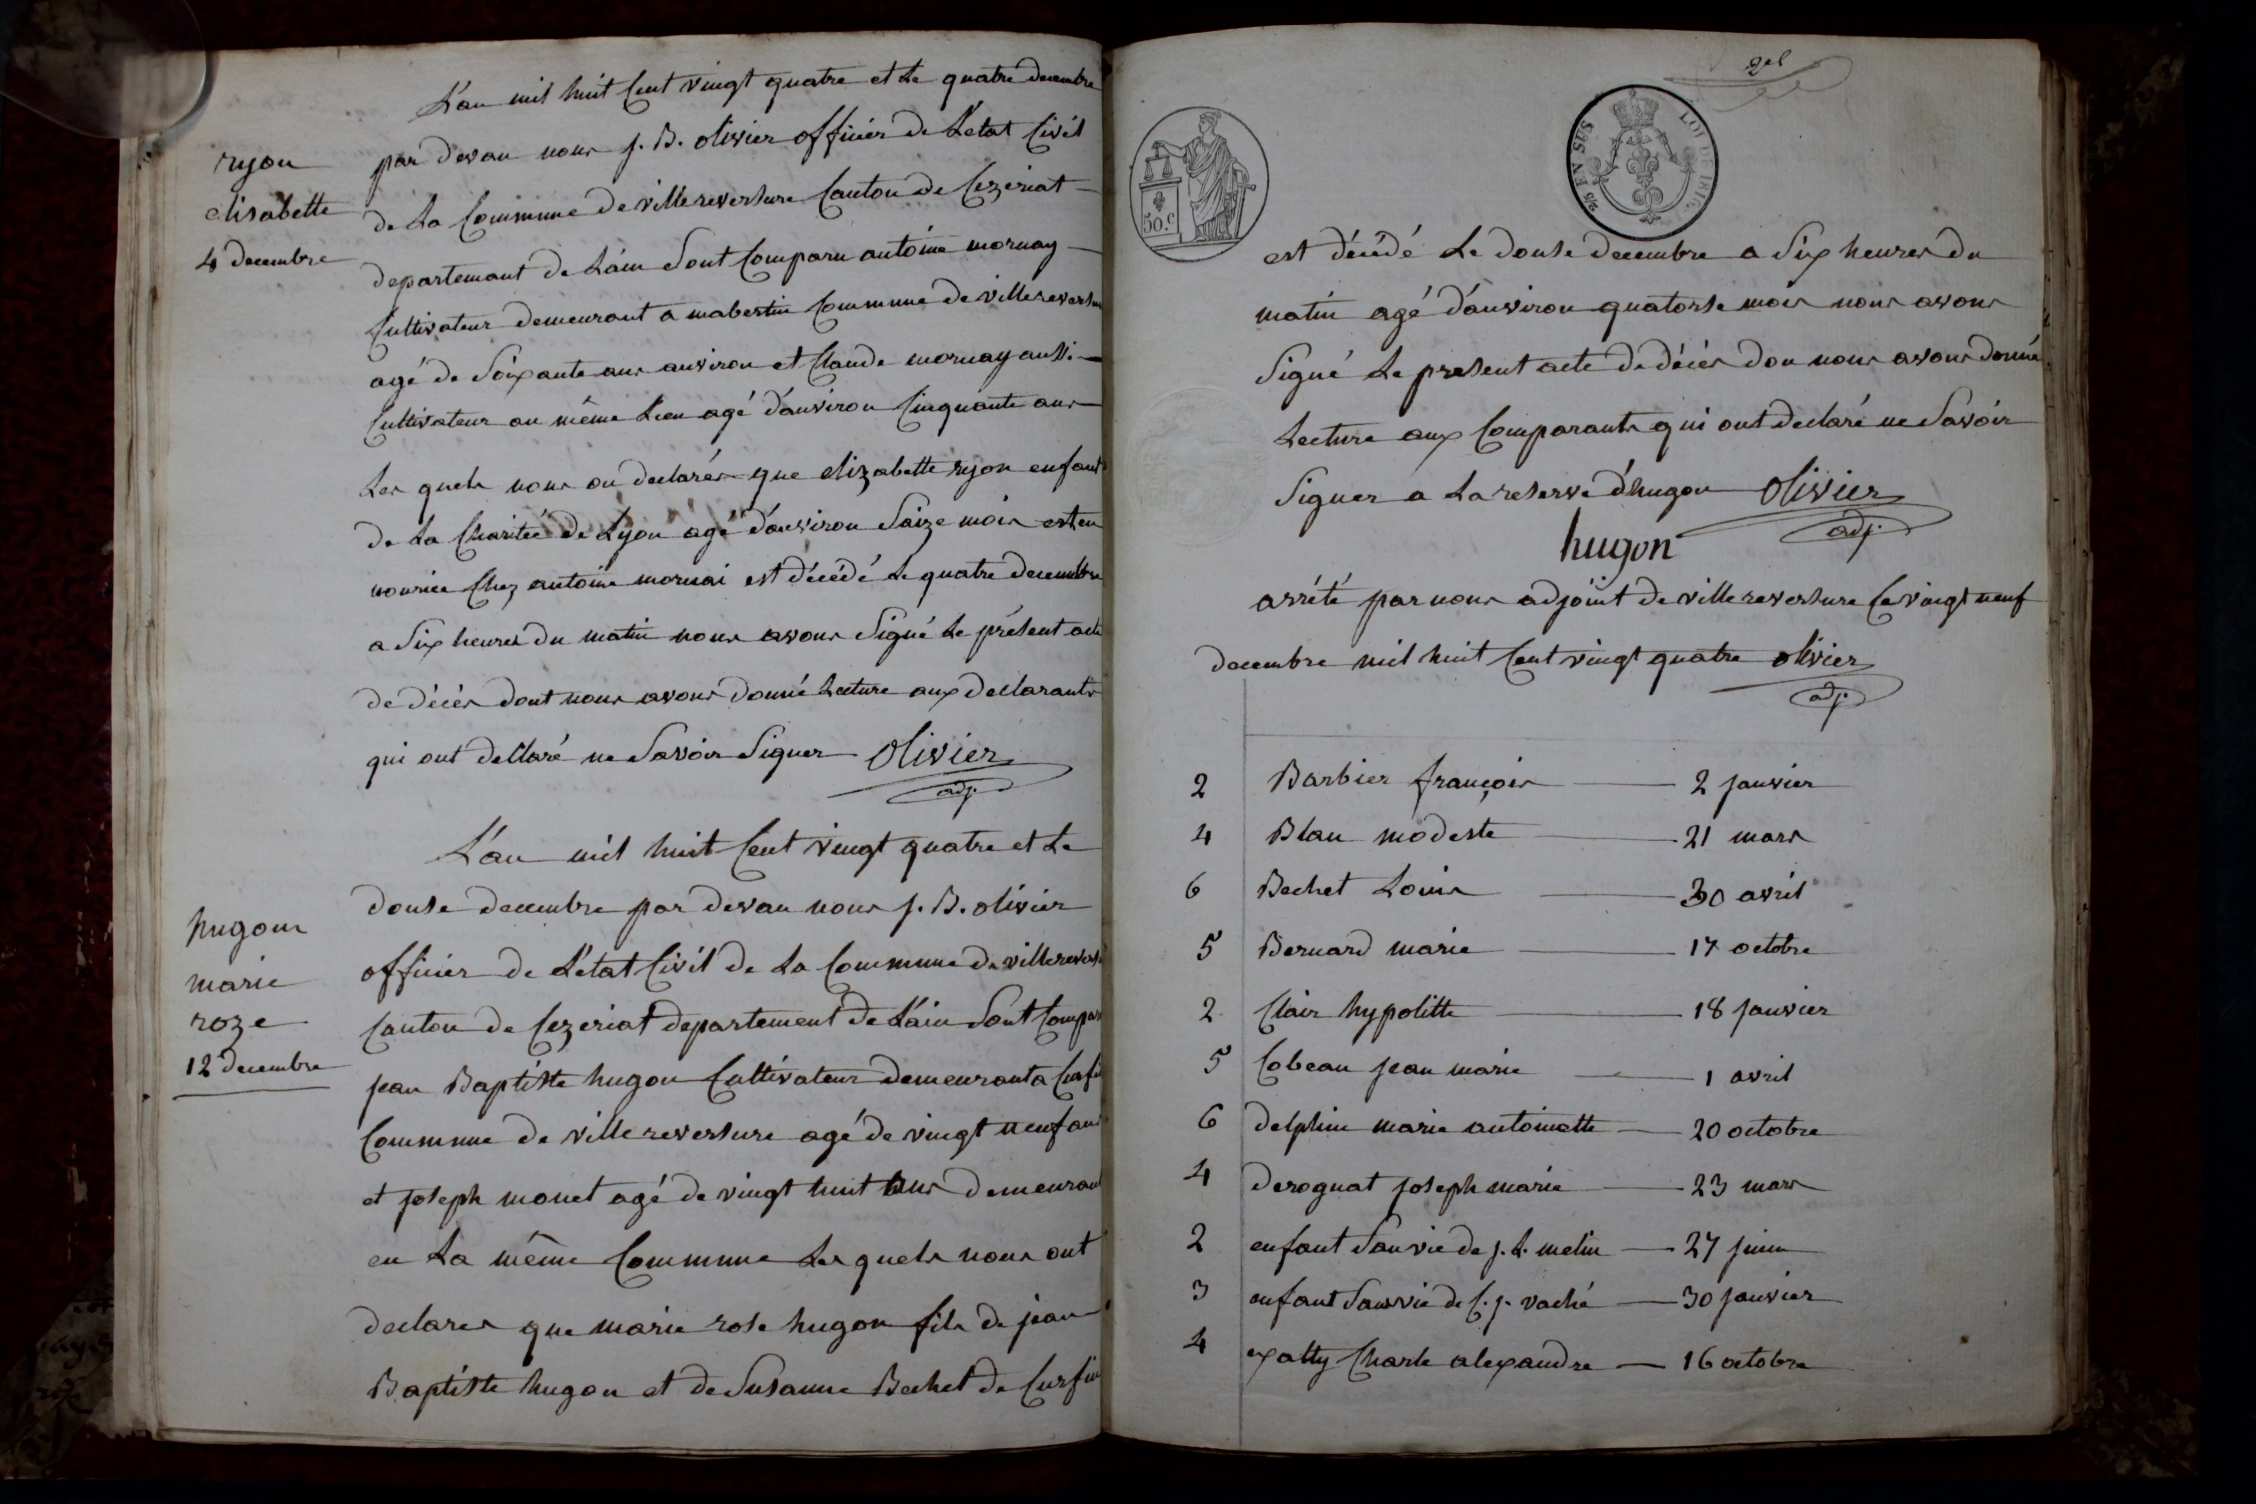 L'an mil huit Cent vingt quatre et Le quatre decembre
par devan nous j. B. olivier officier de L'etat Civil
de La Commune de villereversure Canton de Cezeriat
departemant de L'ain Sont Comparu antoine mornay
Cultivateur demeurant a mabertin Commune de villereversure
agé de Soixante ans anviron et Claude mornay aussi
Cultivateur au même Lieu agé d'anviron Cinquante ans
Les quels nous on declarés que elizabette ryon enfant
de La Charitée de Lyon agé d'anviron Saize mois est en
nourice Chez antoine mornai est décédé Le quatre decembre
a Six heures du matin nous avons Signé Le présent acte
de décès dont nous avons donné Lecture aux declarants
qui ont declaré ne Savoir Signer olivier
adj.
ryon
elisabette
4 decembre
L'an mil huit Cent vingt quatre et Le
douse decembre par devan nous j. B. olivier
officier de L'etat Civil de La Commune de villerevers
Canton de Cezeriat departement de L'ain Sont Compar
jean Baptiste hugon Cultivateur demeurant a Curfin
Commune de villereversure agé de vingt neuf ans
et joseph monet agé de vingt huit ans demeurant
en La même Commune Les quels nous ont
declares que marie rose hugon fils de jean
Baptiste hugon et de Susanne Bechet de Curfin
hugon
marie
roze
12 decembre
50.C
25 EN SUS
LOI DE 1816.
est décédé Le douse decembre a Six heures du
matin agé d'anviron quatorse mois nous avons
Signé Le present acte de décès don nous avons donné
Lecture aux Comparants qui ont declaré ne Savoir
Signer a La reserve d'hugon olivier
adj.
hugon
arrété par nous adjoint de villereversure Ce vingt neuf
decembre mil huit Cent vingt quatre olivier
adj.
2 Barbier françois 2 janvier
4 Blan modeste 21 mars
6 Bechet Louis 30 avril
5 Bernard marie 17 octobre
2 Clair hypolitte 18 janvier
5 Cobeau jean marie 1 avril
6 delphin marie antoinette 20 octobre
4 derognat joseph marie 23 mars
2 enfant Sans vie de j. L. melin 27 juin
3 enfant Sans vie de C. j. vaché 30 janvier
4 exatty Charle alexandre 16 octobre